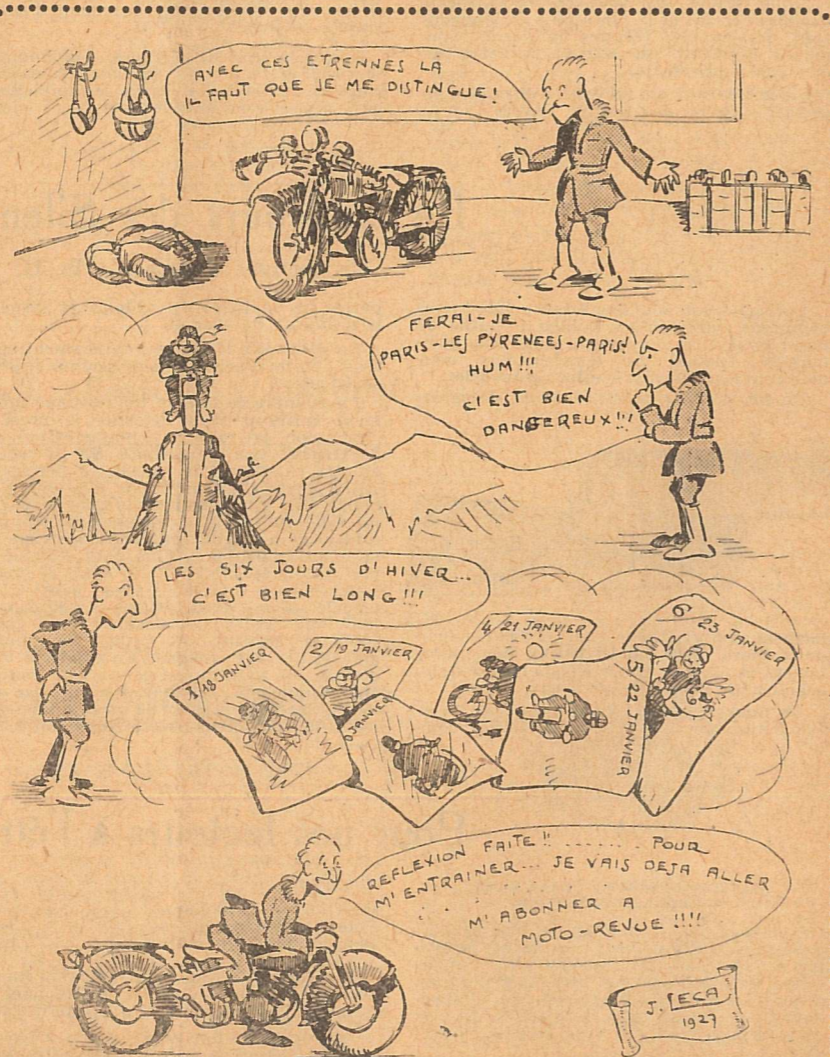 AVEC CES ETRENNES LA
IL FAUT QUE JE ME DISTINGUE!
FERAI-JE
PARIS-LES PYRENEES-PARIS!
HUM!!!
C'EST BIEN
DANGEREUX!!!
LES SIX JOURS D'HIVER...
C'EST BIEN LONG!!!
1/18 JANVIER
2/19 JANVIER
JANVIER
4/21 JANVIER
5/22 JANVIER
6/23 JANVIER
REFLEXION FAITE!! ....... POUR
M'ENTRAINER... JE VAIS DEJA ALLER
M'ABONNER A
MOTO-REVUE!!!!
J. LECA
1927